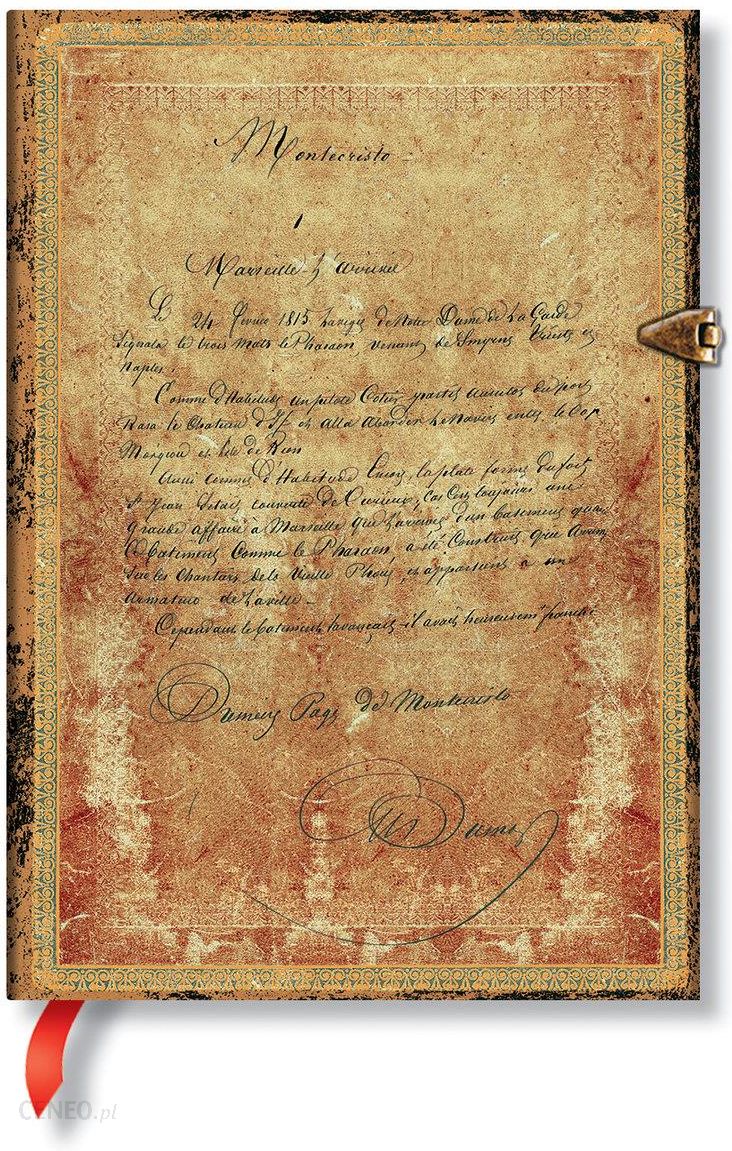 Montecristo —
1
Marseille - L'arrivée
Le 24 février 1815 la vigie de Notre Dame de la Garde
signala le trois mats le Pharaon, venant de Smyrne Trieste et
Naples.
Comme d'habitude un pilote Cotier partit aussitot du port
Rasa le Chateau d'If et alla aborder le Navire entre le Cap
Morgiou et l'ile de Rion
Aussi comme d'habitude la plate forme du fort
St Jean s'etait couverte de Curieux, Car C'est toujours une
grande affaire à Marseille que l'arrivée d'un batiment quand
Ce batiment Comme le Pharaon a été Construit
sur les Chantiers de la Vieille Phocée et appartient a un
armateur de la ville —
Cependant le batiment s'avançait - il avait heureusement franchi
Dumery Page de Montecristo
Alex Dumas
CENEO.pl